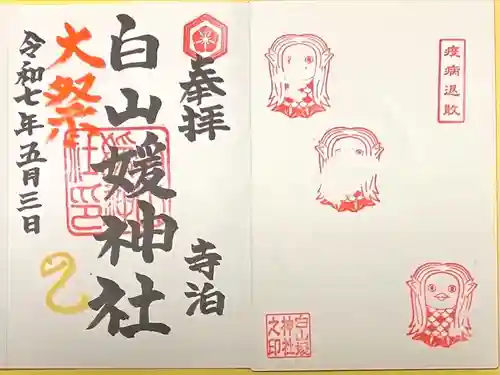 奉拝
寺泊
白山媛神社
大祭
令和七年五月三日
社印
疫病退散
白山媛
神社
之印